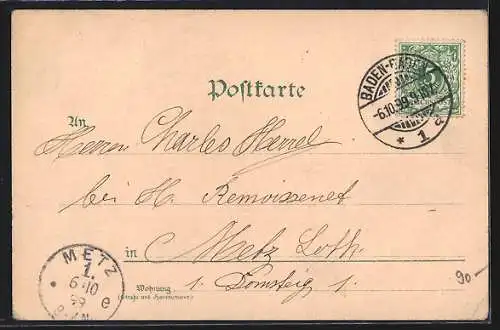 Postkarte
BADEN-BADEN
-6.10.99.9-10V.
* 1 a
An
Herrn Charles
bei H. Remoissenet
in Metz Loth.
Wohnung 1. Domsteig 1.
(Straße und Hausnummer)
METZ
1.
6/10
99
e
90-